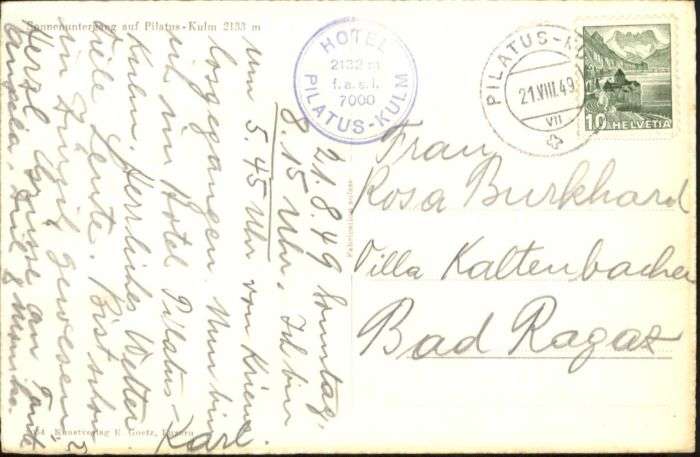 Sonnenuntergang auf Pilatus-Kulm 2133 m
HOTEL
2132 m
f. a. s. l.
7000
PILATUS-KULM
PILATUS-K
21.VIII.49
VII
10 HELVETIA
Frau
Rosa Burkhard
Villa Kaltenbacher
Bad Ragaz
21.8.49 Sonntag,
8.15 Uhr. Ich bin
um 5.45 Uhr von Kriens
losgegangen. Nun bin
ich im Hotel Pilatus-
Kulm. Herrliches Wetter.
Viele Leute. Bist schon
in gewesen?
Herzl. Grüsse an Tante
Karl.
Kunstverlag E. Goetz, Luzern